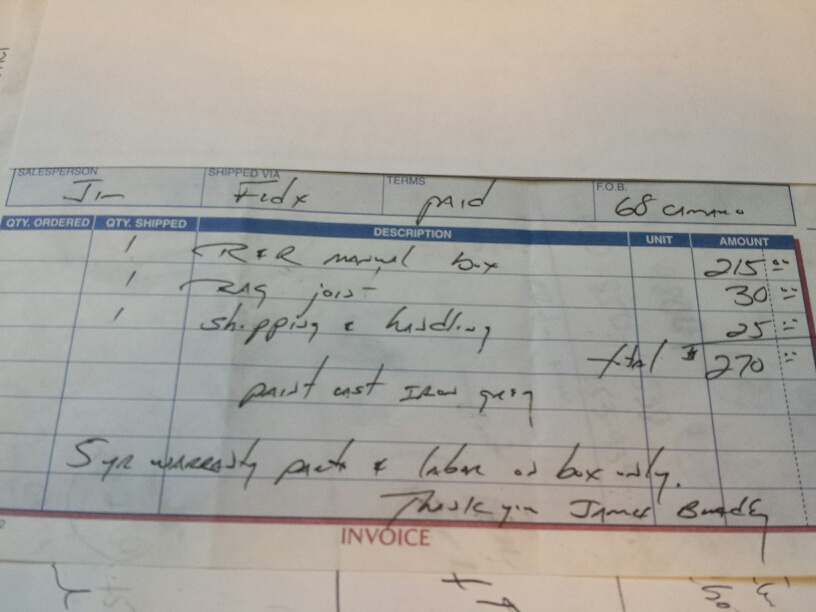 SALESPERSON SHIPPED VIA TERMS F.O.B.
Jim Fedx paid 68 camaro
QTY. ORDERED QTY. SHIPPED DESCRIPTION UNIT AMOUNT
1 R&R manual box 215 00
1 RAG joint 30 00
1 shipping & handling 25 00
total $ 270 00
paint cast IRON grey
5 yr warranty parts & labor on box only.
Thank you James
INVOICE